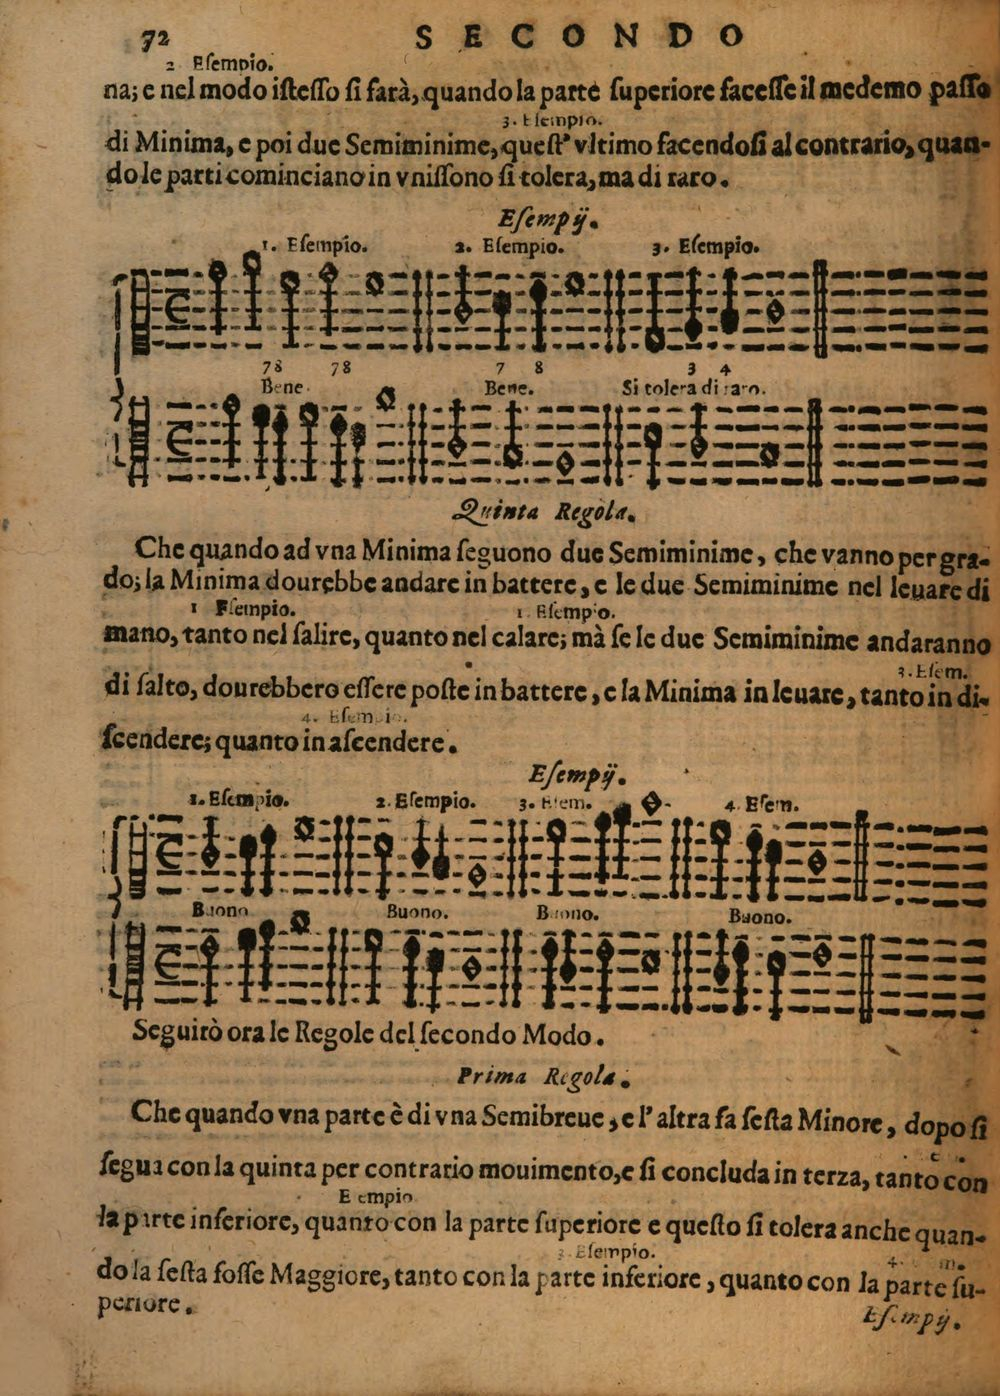 72 SECONDO
2 Eſempio.
na; e nel modo iſteſſo ſi farà, quando la parte ſuperiore faceſſe il medemo paſſo
3. Eſempio.
di Minima, e poi due Semiminime, queſt' vltimo facendoſi al contrario, quan-
do le parti cominciano in vniſſono ſi tolera, ma di raro.
Eſempÿ.
1. Eſempio. 2. Eſempio. 3. Eſempio.
78 78 7 8 3 4
Bene. Bene. Si tolera di raro.
Quinta Regola.
Che quando ad vna Minima ſeguono due Semiminime, che vanno per gra-
do; la Minima dourebbe andare in battere, e le due Semiminime nel leuare di
1 Eſempio. 1. Eſempio.
mano, tanto nel ſalire, quanto nel calare; mà ſe le due Semiminime andaranno
3. Eſem.
di ſalto, dourebbero eſſere poſte in battere, e la Minima in leuare, tanto in di-
4. Eſempio.
ſcendere; quanto in aſcendere.
Eſempÿ.
1. Eſempio. 2. Eſempio. 3. Eſem. 4. Eſem.
Buono. Buono. Buono. Buono.
Seguirò ora le Regole del ſecondo Modo.
Prima Regola.
Che quando vna parte è di vna Semibreue, e l' altra fa ſeſta Minore, dopo ſi
ſegua con la quinta per contrario mouimento, e ſi concluda in terza, tanto con
Eſempio
la parte inferiore, quanto con la parte ſuperiore e queſto ſi tolera anche quan-
3. Eſempio.
do la ſeſta foſſe Maggiore, tanto con la parte inferiore, quanto con la parte ſu-
periore.
Eſempÿ.